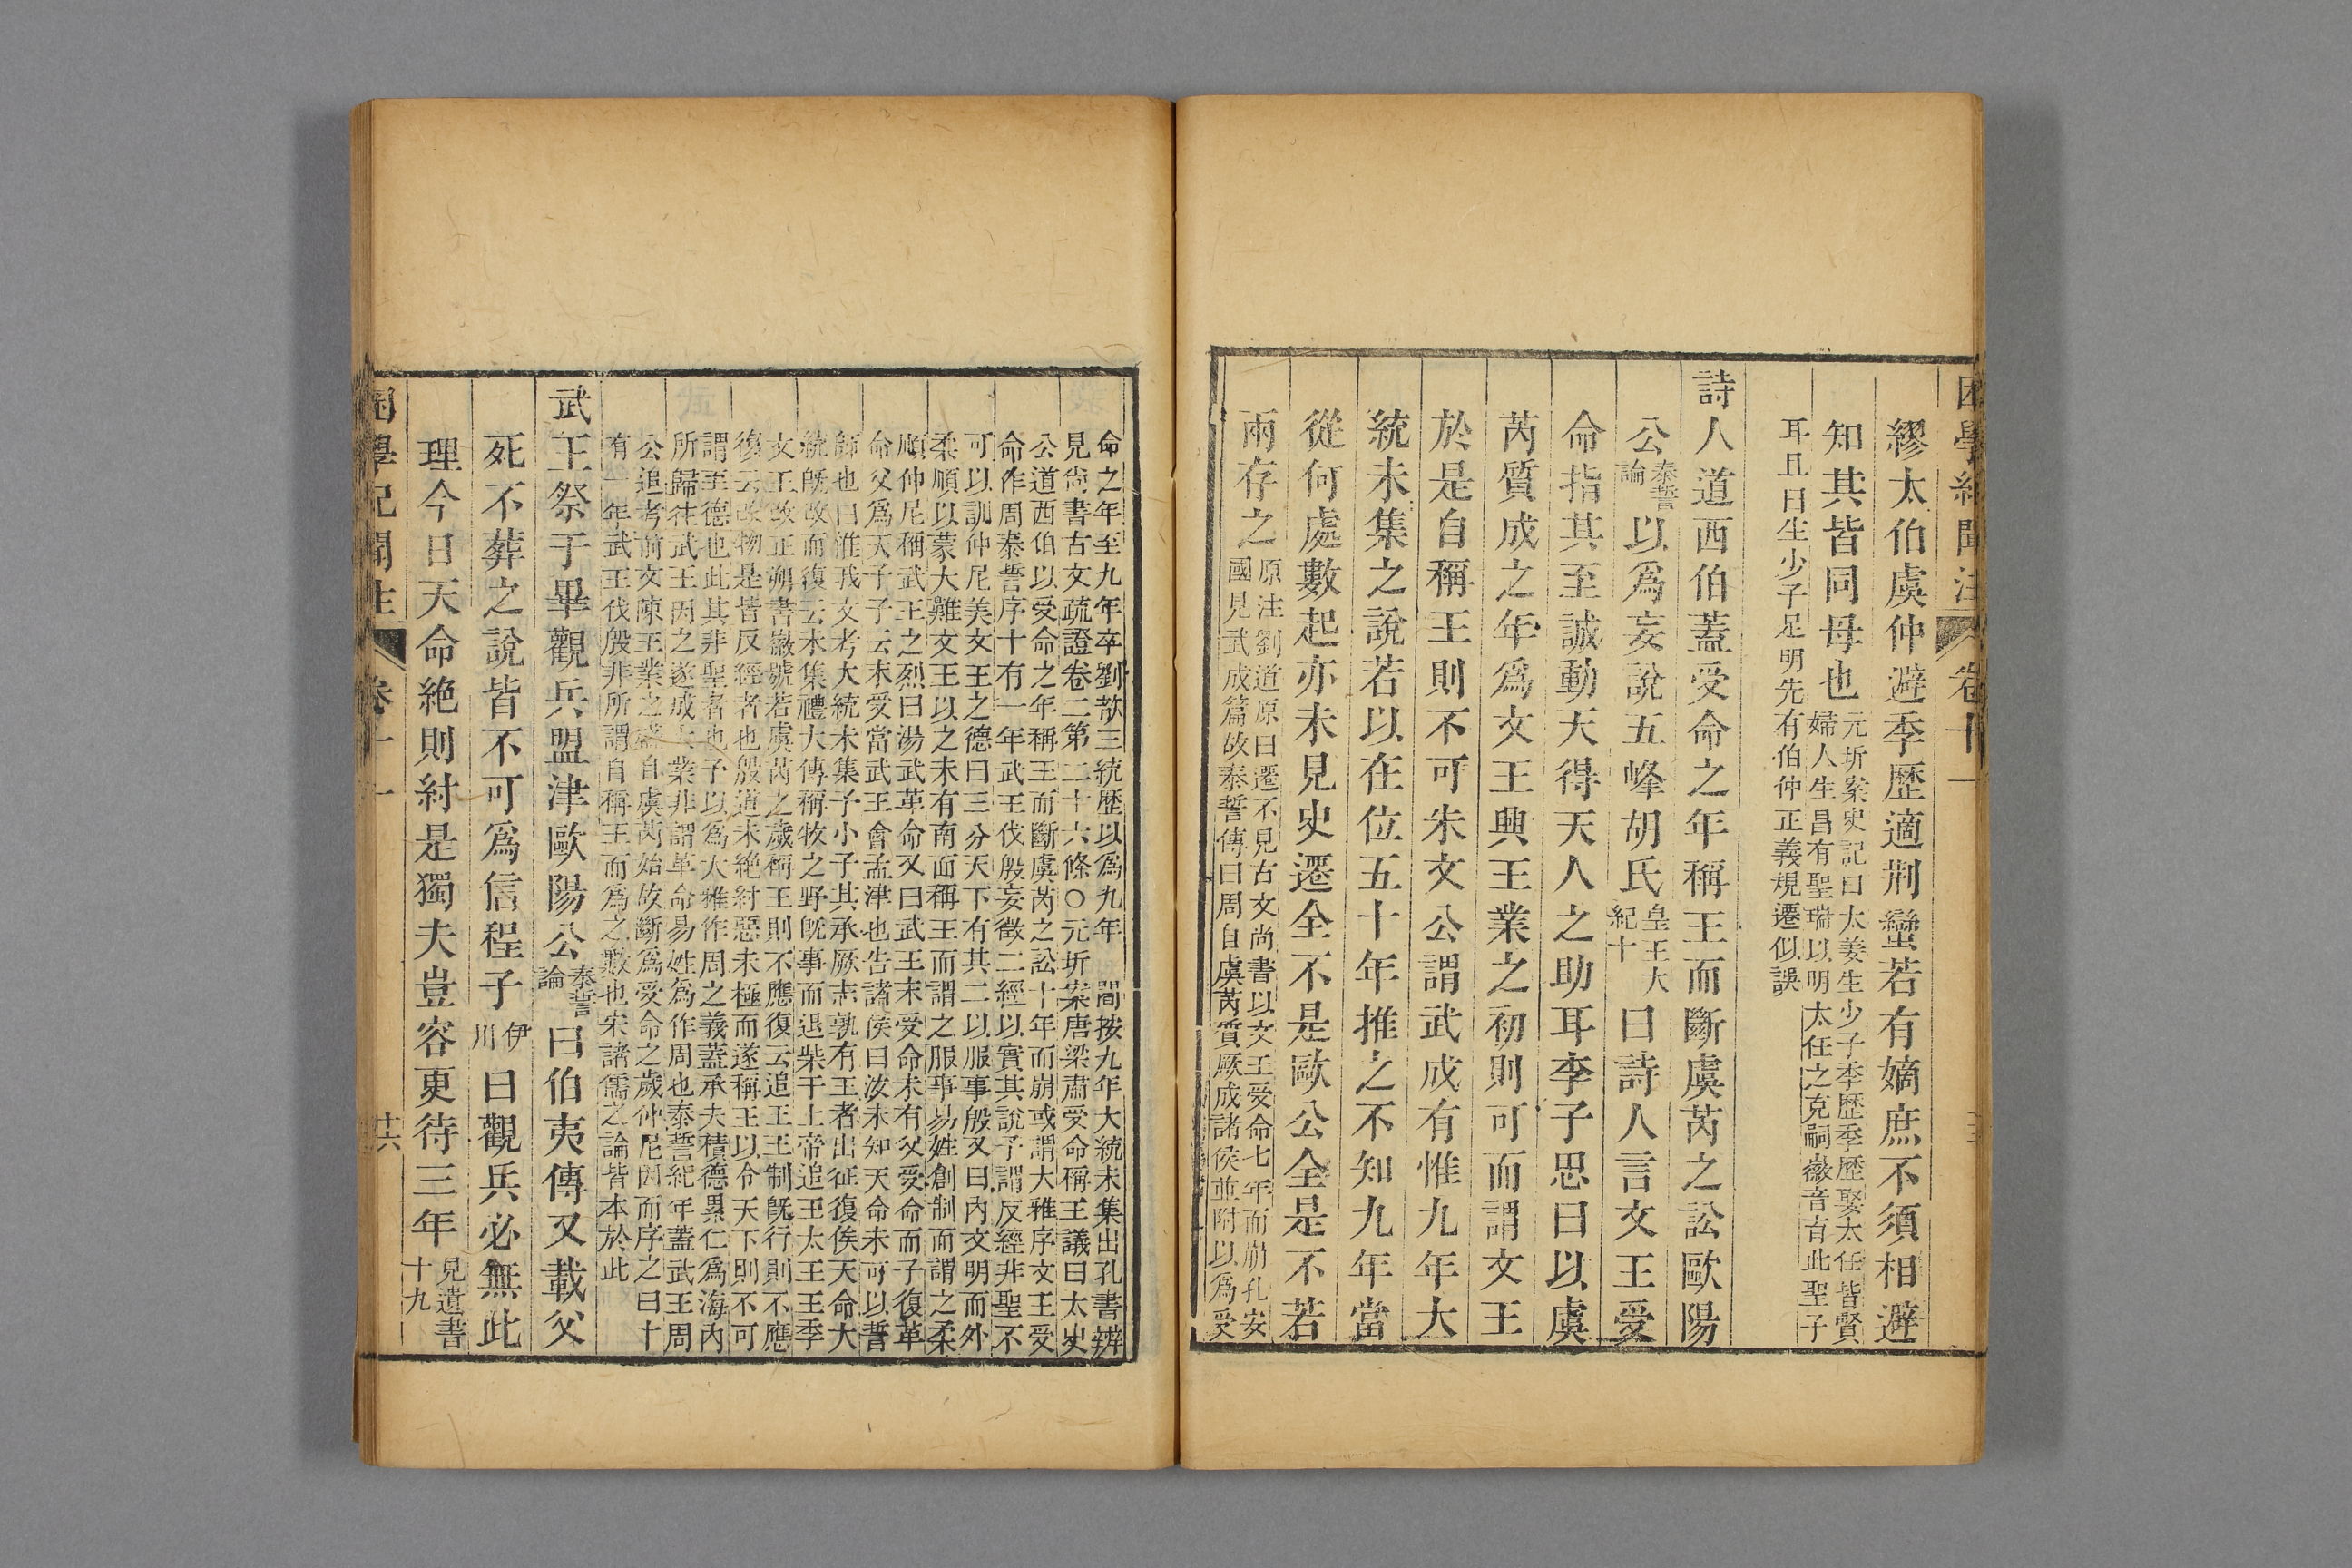 困學紀聞注 卷十一
繆太伯虞仲避季歷適荆蠻若有嫡庶不須相避
知其皆同母也元圻案史記曰太姜生少子季歷季歷娶太任皆賢
婦人生昌有聖瑞以明太任之克嗣徽音育此聖子
耳且曰生少子足明先有伯仲正義規遷似誤
詩人道西伯蓋受命之年稱王而斷虞芮之訟歐陽
公泰誓論以爲妄說五峰胡氏皇王大紀十曰詩人言文王受
命指其至誠動天得天人之助耳李子思曰以虞
芮質成之年爲文王興王業之初則可而謂文王
於是自稱王則不可朱文公謂武成有惟九年大
統未集之說若以在位五十年推之不知九年當
從何處數起亦未見史遷全不是歐公全是不若
兩存之原注劉道原曰遷不見古文尚書以文王受命七年而崩孔安
國見武成篇故泰誓傳曰周自虞芮質厥成諸侯並附以爲受
命之年至九年卒劉歆三統歷以爲九年 閻按九年大統未集出孔書辨
見尚書古文疏證卷二第二十六條○元圻案唐梁肅受命稱王議曰太史
公道西伯以受命之年稱王而斷虞芮之訟十年而崩或謂大雅序文王受
命作周泰誓序十有一年武王伐殷妄徵二經以實其說予謂反經非聖不
可以訓仲尼美文王之德曰三分天下有其二以服事殷又曰內文明而外
柔順以蒙大難文王以之未有南面稱王而謂之服事易姓創制而謂之柔
順仲尼稱武王之烈曰湯武革命又曰武王末受命未有父受命而子復革
命父爲天子子云末受當武王會孟津也告諸侯曰汝未知天命未可以誓
師也曰惟我文考大統未集予小子其承厥志孰有王者出征復俟天命大
統旣改而復云未集禮大傳稱牧之野旣事而退柴于上帝追王太王王季
文王改正朔書徽號若虞芮之歲稱王則不應復云追王王制旣行則不應
復云改物是皆反經者也殷道未絶紂惡未極而遂稱王以令天下則不可
謂至德也此其非聖者也予以爲大雅作周之義蓋承夫積德累仁爲海內
所歸往武王因之遂成大業非謂革命易姓爲作周也泰誓紀年蓋武王周
公追考前文陳王業之盛自虞芮始故斷爲受命之歲仲尼因而序之曰十
有一年武王伐殷非所謂自稱王而爲之數也宋諸儒之論皆本於此
武王祭于畢觀兵盟津歐陽公泰誓論曰伯夷傳又載父
死不葬之說皆不可爲信程子伊川曰觀兵必無此
理今日天命絶則紂是獨夫豈容更待三年見遺書十九
困學紀聞注 卷十一 廿六